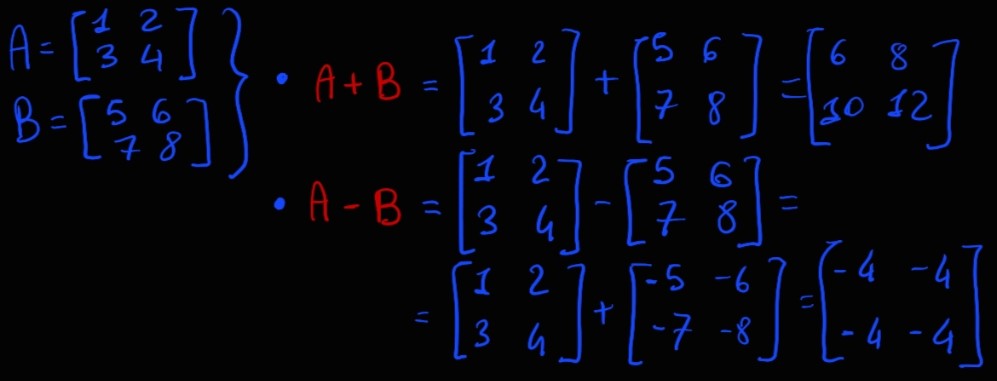 A = [1 2
3 4]
B = [5 6
7 8] }
• A + B = [1 2
3 4] + [5 6
7 8] = [6 8
10 12]
• A - B = [1 2
3 4] - [5 6
7 8] =
= [1 2
3 4] + [-5 -6
-7 -8] = [-4 -4
-4 -4]